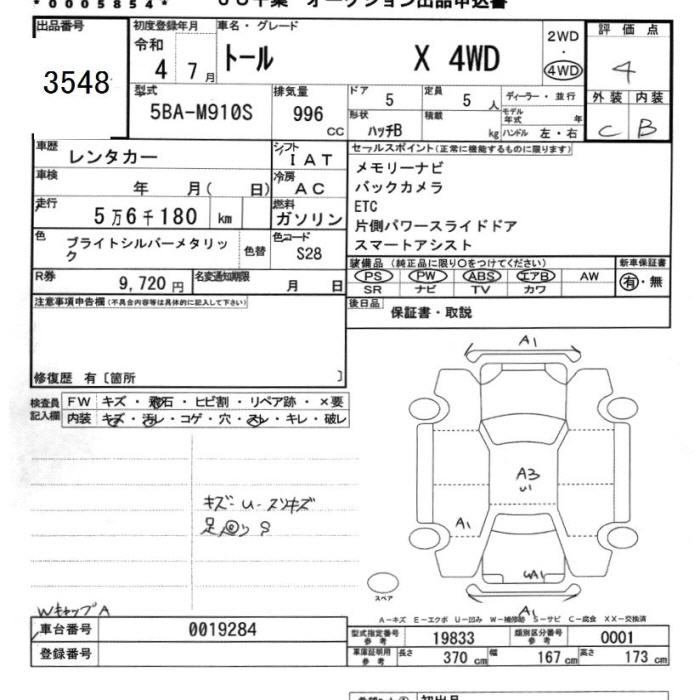 *0005854*
JU千葉 オークション出品申込書
出品番号
3548
初度登録年月
令和
4 7月
車名・グレード
トール X 4WD
2WD
・
4WD
評価点
4
外装 内装
C B
型式
5BA-M910S
排気量
996
cc
ドア
5
定員
5 人
形状
ハッチB
積載
kg
ディーラー・並行
モデル年式 年
ハンドル 左・右
車歴
レンタカー
シフト
IAT
車検
年 月( 日)
冷房
AC
走行
5万6千180 km
燃料
ガソリン
色
ブライトシルバーメタリック
色替
色コード
S28
R券
9,720円
名変通知期限
月 日
セールスポイント(正常に機能するものに限ります)
メモリーナビ
バックカメラ
ETC
片側パワースライドドア
スマートアシスト
装備品(純正品に限り○をつけてください)
PS PW ABS エアB AW
SR ナビ TV カワ
新車保証書
有・無
後日品
保証書・取説
注意事項申告欄(不具合内容等は具体的に記入して下さい)
修復歴 有〔箇所 〕
検査員記入欄
FW キズ・飛石・ヒビ割・リペア跡・×要
内装 キズ・汚レ・コゲ・穴・スレ・キレ・破レ
キズ U スリキズ
足回り S
WキャップA
A1
A3
U1
A1
UA1
A1
スペア
A-キズ E-エクボ U-凹み W-補修跡 S-サビ C-腐食 XX-交換済
車台番号
0019284
登録番号
型式指定番号 参考
19833
類別区分番号 参考
0001
車庫証明用 参考
長さ 370cm
幅 167cm
高さ 173cm